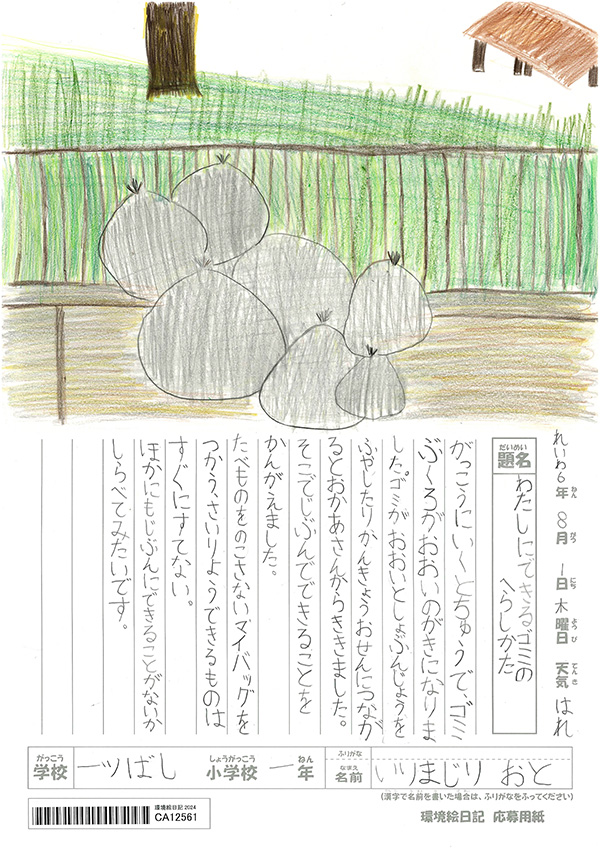 れいわ6年ねん 8月がつ 1日にち 木曜日ようび 天気てんき はれ
だいめい
題名 わたしにできるゴミの
へらしかた
がっこうにいくとちゅうで、ゴミ
ぶくろがおおいのがきになりま
した。ゴミがおおいとしょぶんじょうを
ふやしたりかんきょうおせんにつなが
るとおかあさんからききました。
そこでじぶんでできることを
かんがえました。
たべものをのこさないマイバッグを
つかう、さいりようできるものは
すぐにすてない。
ほかにもじぶんにできることがないか
しらべてみたいです。
がっこう しょうがっこう ねん ふりがな
学校 一ツばし 小学校 一年 なまえ 名前 いりまじり おと
(漢字で名前を書いた場合は、ふりがなをふってください)
環境絵日記 2024
CA12561
環境絵日記 応募用紙